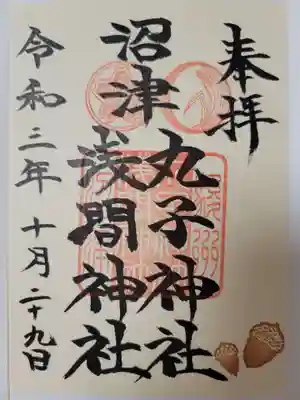 奉拝
沼津
丸子神社
浅間神社
令和三年十月二十九日